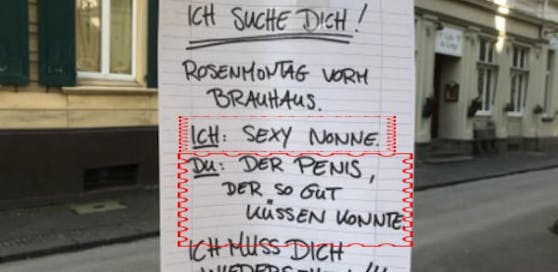 ICH SUCHE DICH!
ROSENMONTAG VORM
BRAUHAUS.
ICH: SEXY NONNE.
DU: DER PENIS,
DER SO GUT
KÜSSEN KONNTE
ICH MUSS DICH
WIEDERSEHEN!!!